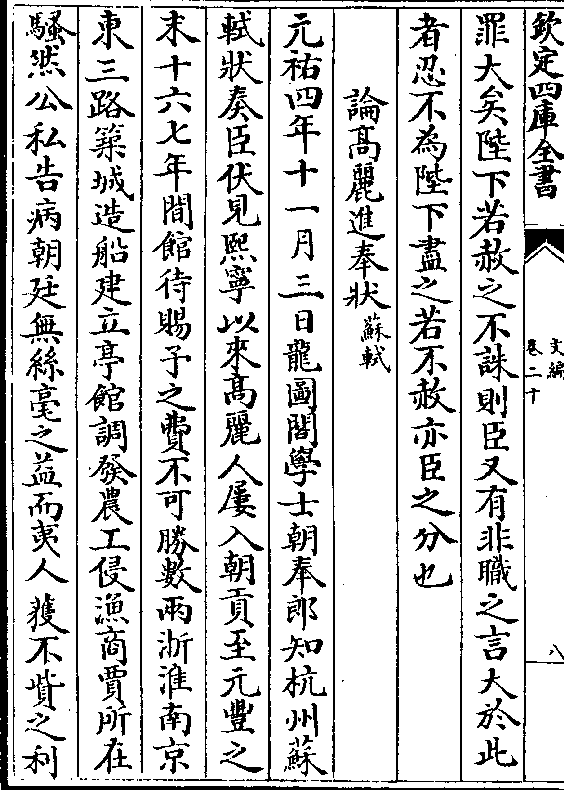 欽定四庫全書
文編
卷二十
八
罪大矣陛下若赦之不誅則臣又有非職之言大於此
者忍不為陛下盡之若不赦亦臣之分也
論髙麗進奉狀 蘇軾
元祐四年十一月三日龍圖閣學士朝奉郎知杭州蘇
軾狀奏臣伏見熙寧以來髙麗人屢入朝貢至元豐之
末十六七年間館待賜予之費不可勝數兩浙淮南京
東三路築城造船建立亭館調發農工侵漁商賈所在
騷然公私告病朝廷無絲毫之益而夷人獲不貲之利